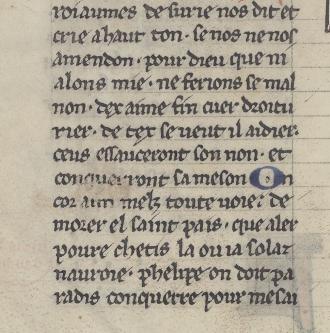 roiaumes de surie nos dit et
crie a haut ton · se nos ne nos
amendon · pour dieu que ni
alons mie · ne ferions se mal
non · dex aime fin cuer droitu
rier · de tex se veut il aidier ·
ceus essauceront son non · et
conquerront sa meson On
cor aim melz toute voie · de
morer el saint pais · que aler
poure chetis la ou ia solaz
nauroie · phelipe on doit pa
radis conquerre pour mesai